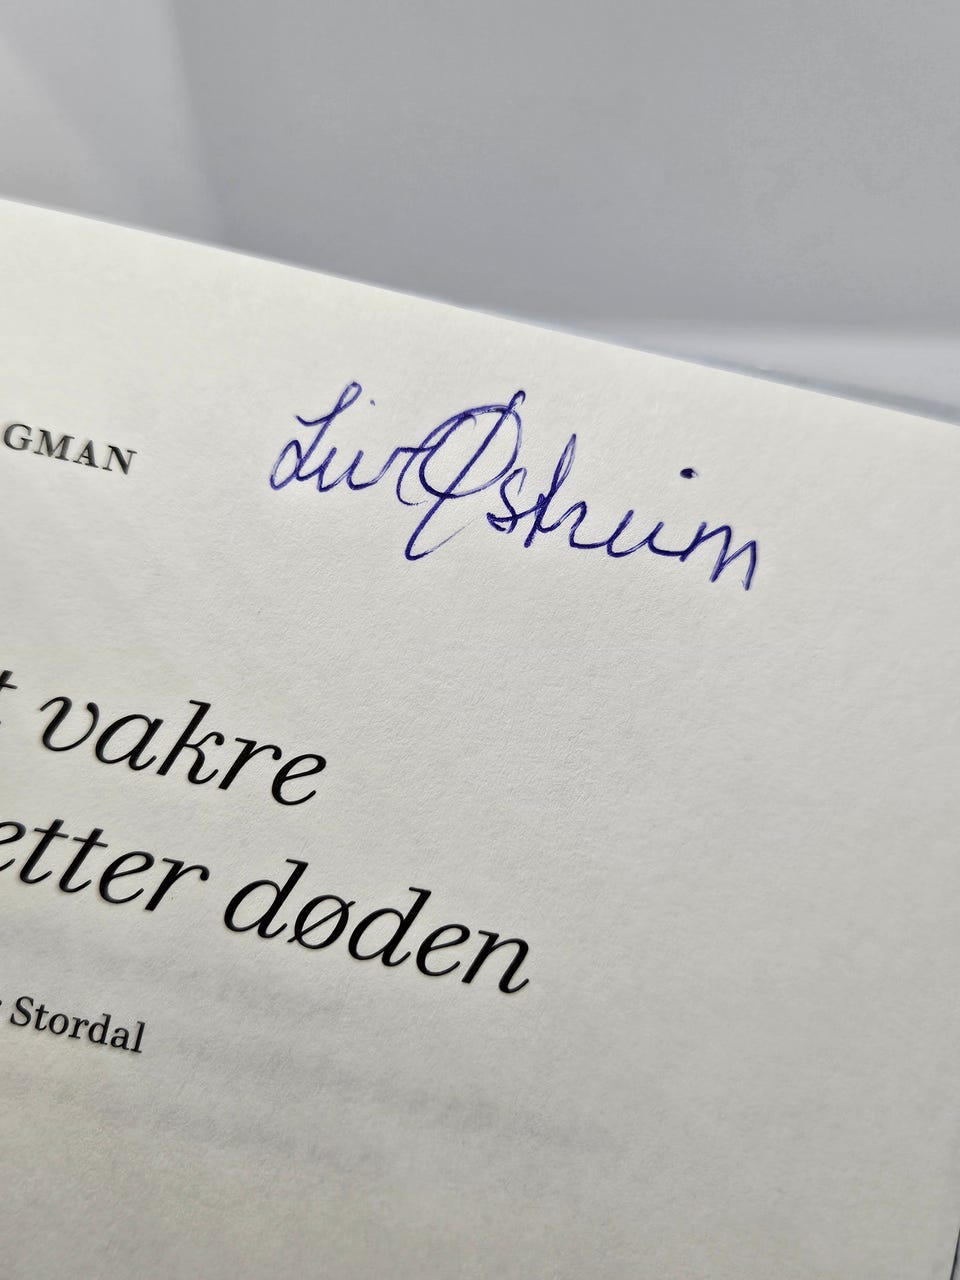 GMAN
Liv Østreim
t vakre
etter døden
Stordal